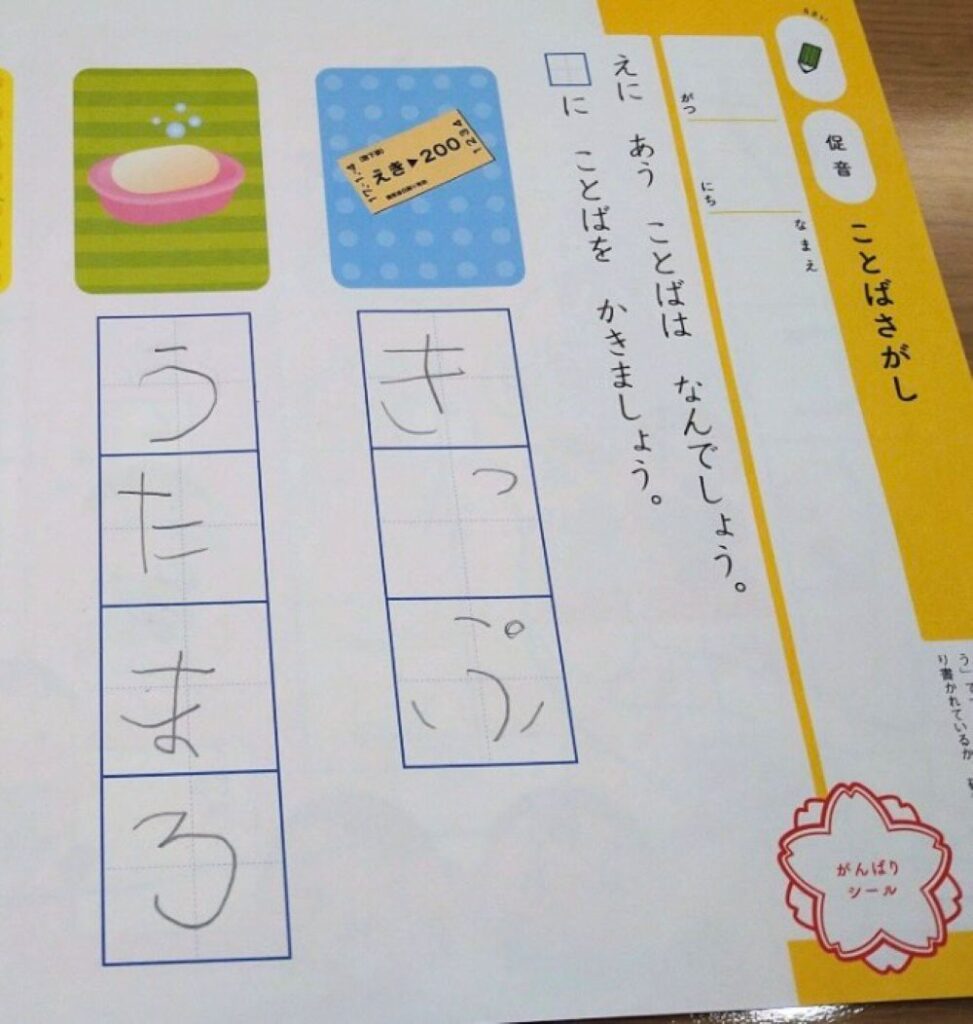 ことばさがし
促音
がつ
にち
なまえ
えに あう ことばは なんでしょう。
□に ことばを かきましょう。
えき▶200
1234
きっぷ
うたまろ
がんばり
シール
り書かれているか